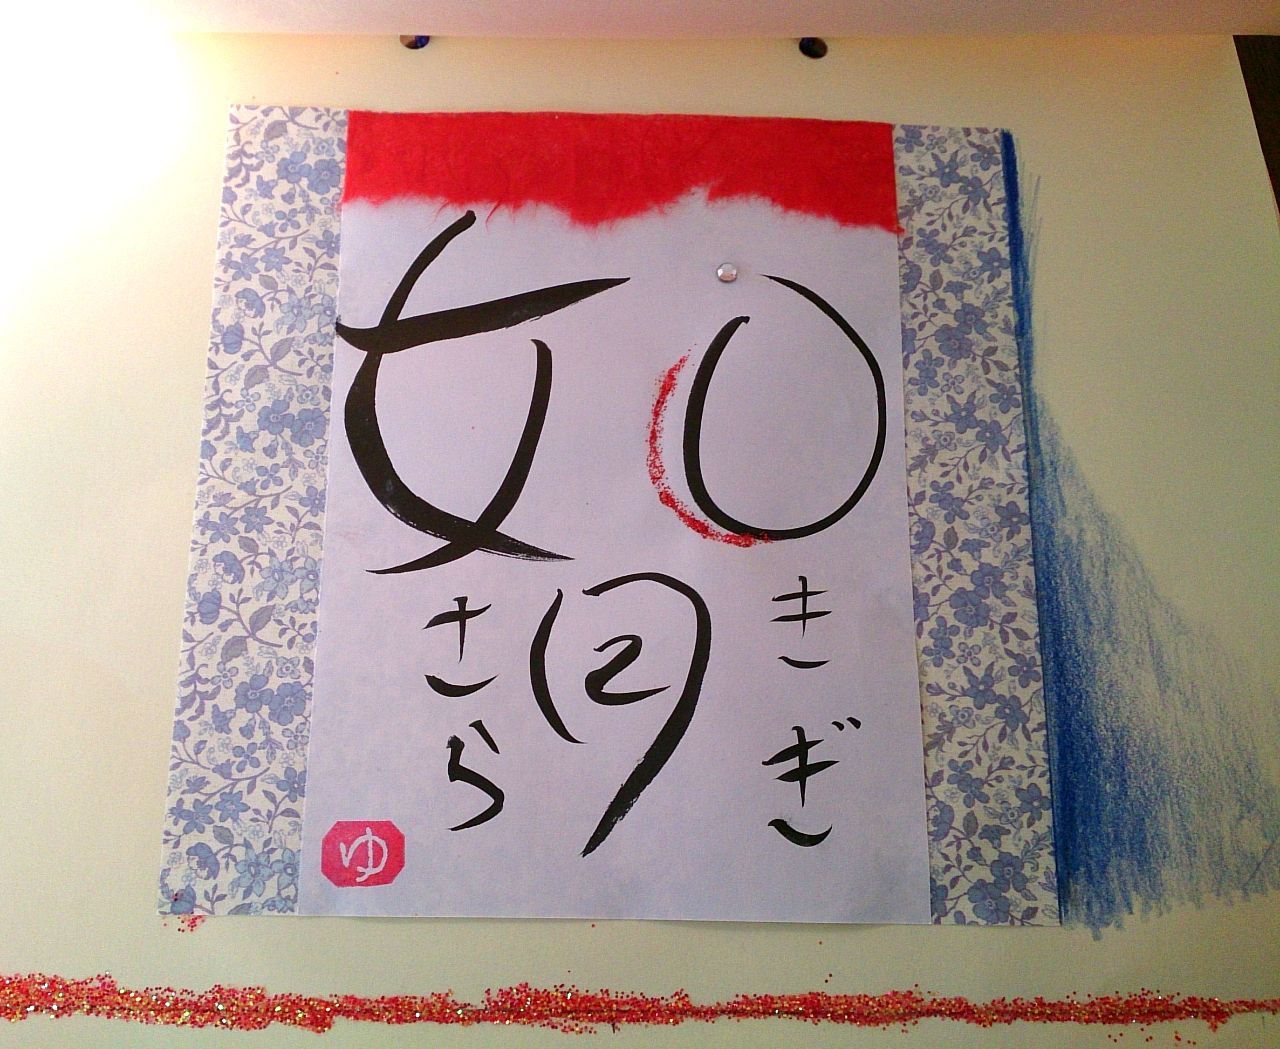 如月
きさらぎ
ゆ